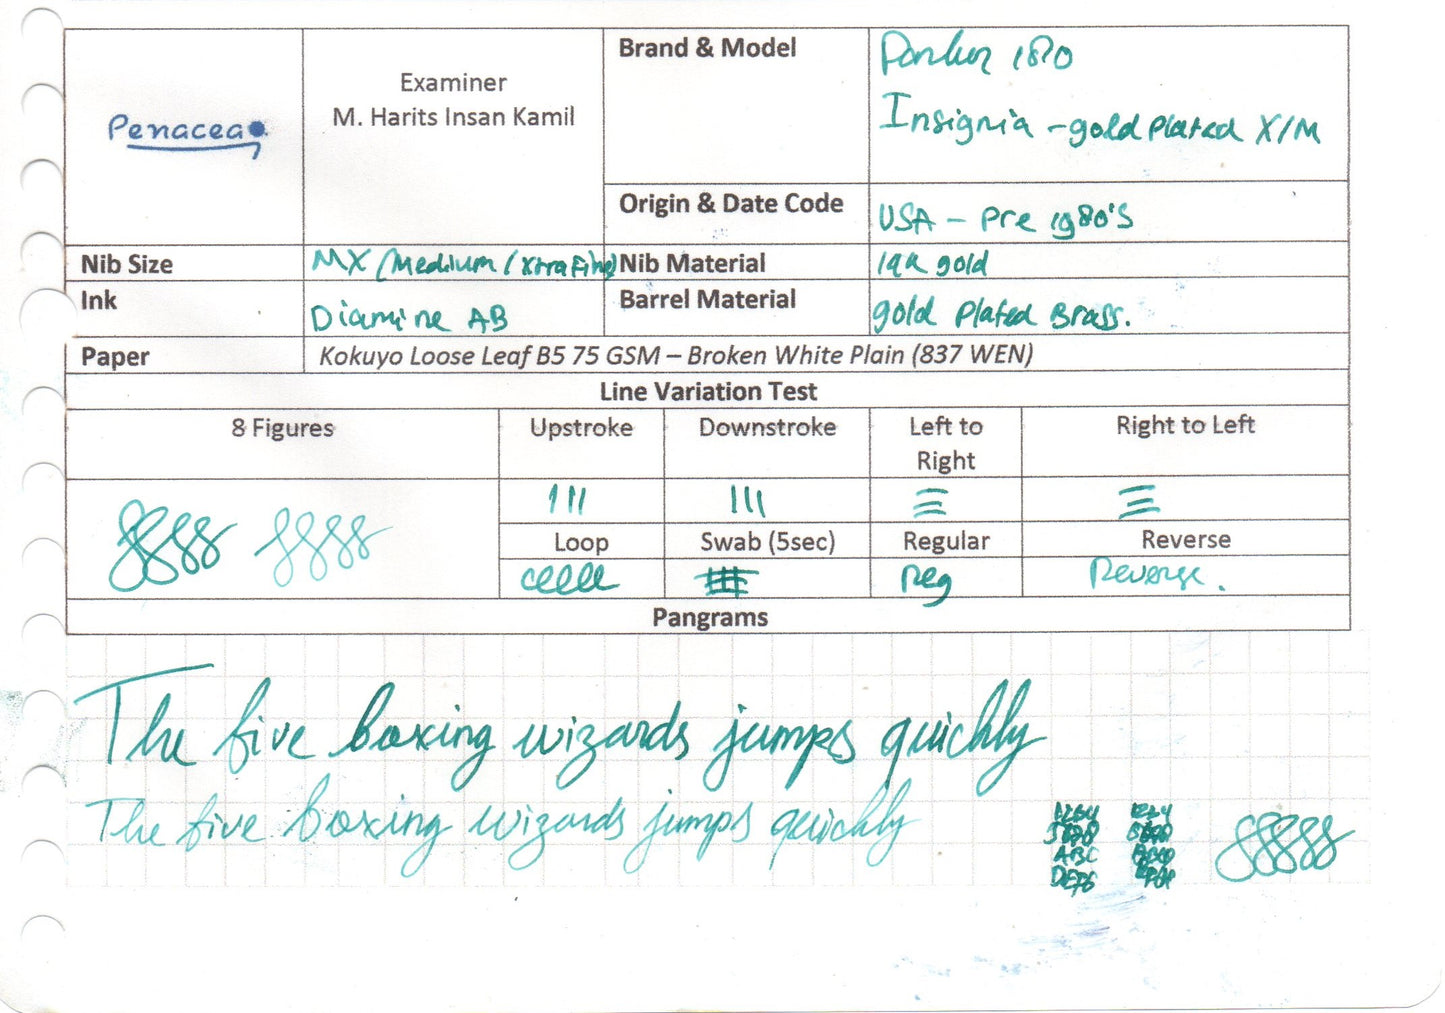 Penacea
Examiner
M. Harits Insan Kamil
Brand & Model
Parker 180
Insignia - gold plated X/M
Origin & Date Code
USA - Pre 1980's
Nib Size
MX (Medium / XtraFine)
Nib Material
14k gold
Ink
Diamine AB
Barrel Material
gold Plated Brass.
Paper
Kokuyo Loose Leaf B5 75 GSM – Broken White Plain (837 WEN)
Line Variation Test
8 Figures
Upstroke
Downstroke
Left to
Right
Right to Left
Loop
Swab (5sec)
Regular
Reverse
Reg
Reverse.
Pangrams
The five boxing wizards jumps quickly
The five boxing wizards jumps quickly
1234
5678
ABC